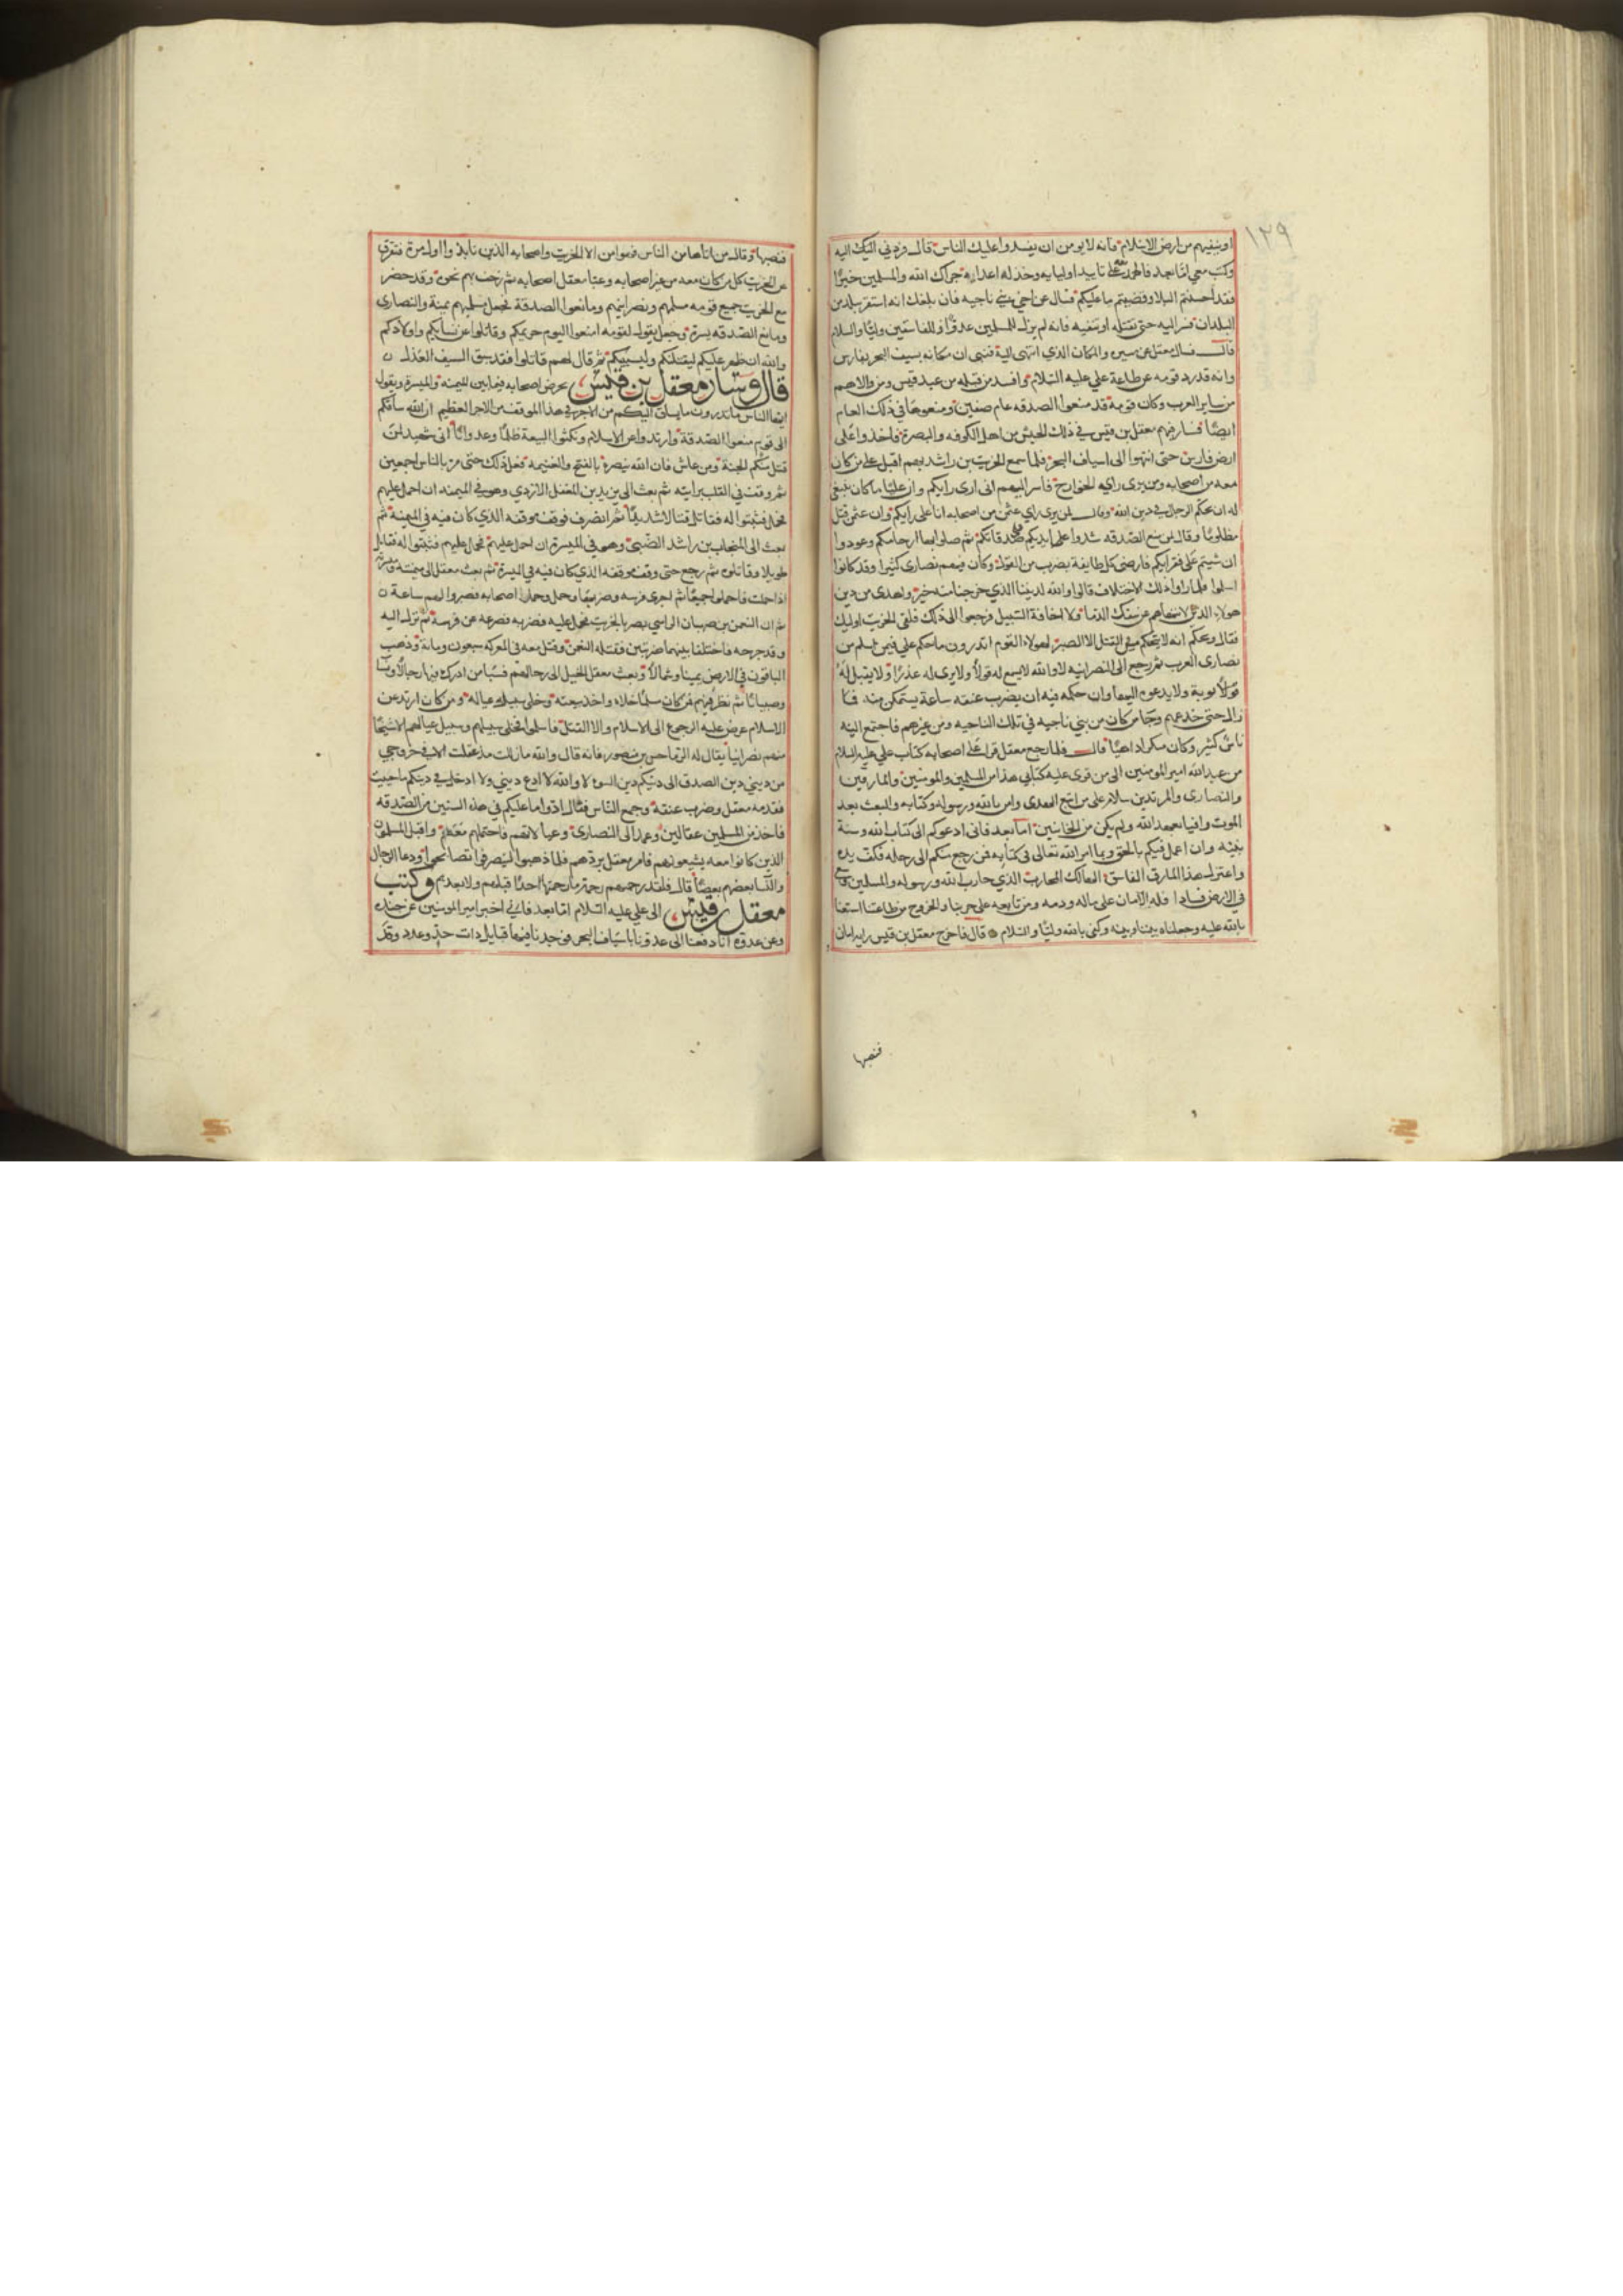 ١٢٩
او ينفيهم من ارض الاسلام فانه لا يومن ان يفسدوا عليك الناس قال فردني اليك اليه
وكتب معي اما بعد فالحمد لله على تاييد اوليايه وخذله اعدايه جزاك الله والمسلمين خيرا
فقد احسنتم البلا وقضيتم ما عليكم فسال عن اخي بني ناجيه فان بلغك انه استقر ببلد من
البلدان فسر اليه حتى تقتله او تنفيه فانه لم يزل للمسلمين عدوا وللفاسقين وليا والسلام
قال فسال معقل عن مسيره والمكان الذي انتهى اليه فنبي ان مكانه بسيف البحر بفارس
وانه قد رد قومه عن طاعة علي عليه السلام وافسد من قبله من عبد قيس ومن والاهم
من ساير العرب وكان قومه قد منعوا الصدقه عام صفين ومنعوها في ذلك العام
ايضا فسار اليهم معقل بن قيس في ذلك الجيش من اهل الكوفه والبصرة فاخذوا على
ارض فارس حتى انتهوا الى اسياف البحر فلما سمع الخريت بن راشد بهم اقبل على من كان
معه من اصحابه ومن يرى راي الخوارج فاسر اليهم اني ارى رايكم وان عليا ما كان ينبغي
له ان يحكم الرجال في دين الله وقال لمن يرى راي عثمن من اصحابه انا على رايكم وان عثمن قتل
مظلوما وقال لمن منع الصدقه شدوا على ايديكم صدقاتكم ثم صلوا بها ارحامكم وعودوا
ان شيتم على فقرايكم فارضى كل طايفة بضرب من القول وكان فيهم نصارى كثيرا وقد كانوا
اسلموا فلما راوا ذلك الاختلاف قالوا والله لديننا الذي خرجنا منه خير واهدى من دين
هولاء الذين لا ينهاهم عن سفك الدما ولا اخافة السبيل فرجعوا الى ذلك فلقي الخريت اوليك
فقال ويحكم انه لا ينجيكم من القتل الا الصبر لهولاء القوم اتدرون ما حكم علي فيمن اسلم من
نصارى العرب ثم رجع الى النصرانيه لا والله لا يسمع له قولا ولا يرى له عذرا ولا يقبل له
قولا توبة ولا يدعوه اليها وان حكمه فيه ان يضرب عنقه ساعة يستمكن منه فما
زال حتى خدعهم وجا من كان من بني ناجيه في تلك الناحيه ومن غيرهم فاجتمع اليه
ناس كثير وكان منكرا داهيا قال فلما رجع معقل قرا على اصحابه كتاب علي عليه السلام
من عبد الله امير المومنين الى من قرى عليه كتابي هذا من المسلمين والمومنين والمارقين
والنصارى والمرتدين سلام على من اتبع الهدى وامن بالله ورسوله وكتابه والبعث بعد
الموت وافيا بعهد الله ولم يكن من الخاينين اما بعد فاني ادعوكم الى كتاب الله وسنة
نبيه وان اعمل فيكم بالحق وبما امر الله تعالى في كتابه فمن رجع منكم الى رحله فكف يده
واعتزل هذا المارق الفاسق الهالك المحارب الذي حارب الله ورسوله والمسلمين وسعى
في الارض فسادا فله الامان على ماله ودمه ومن تابعه على حربنا والخروج من طاعتنا استعنا
بالله عليه وجعلناه بيننا وبينه وكفى بالله وليا والسلام قال فاخرج معقل بن قيس راية امان
فنصبها
فنصبها وقال من اتاها من الناس فهو امن الا الخريت واصحابه الذين نابذوا اول مرة فتفرق
عن الخريت كل من كان معه من غير اصحابه وعبا معقل اصحابه ثم زحف بهم نحوه وقد حضر
مع الخريت جميع قومه مسلمهم ونصرانيهم ومانعوا الصدقة فجعل مسلميهم يمنة والنصارى
ومانع الصدقه يسرة وجعل يقول لقومه امنعوا اليوم حريمكم وقاتلوا عن نسايكم واولادكم
والله ان ظهر عليكم ليقتلنكم وليسبينكم ثم قال لهم قاتلوا فقد سبق السيف العذل
قال وسار معقل بن قيس يحرض اصحابه فيما بين الميمنه والميسرة ويقول
ايها الناس ما تدرون ما يساق اليكم من الاجر في هذا الموقف من الاجر العظيم ان الله ساقكم
الى قوم منعوا الصدقة وارتدوا عن الاسلام ونكثوا البيعة ظلما وعدوانا اني شهيد لمن
قتل منكم بالجنة ومن عاش فان الله ينصره بالفتح والغنيمة ففعل ذلك حتى مر بالناس اجمعين
ثم وقف في القلب برايته ثم بعث الى يزيد بن المغفل الازدي وهو في الميمنه ان احمل عليهم
فحمل فثبتوا له فقاتل قتالا شديدا ثم انصرف فوقف موقفه الذي كان فيه في الميمنة ثم
بعث الى المنجاب بن راشد الضبي وهو في الميسرة ان احمل عليهم فحمل عليهم فثبتوا له فقاتل
طويلا وقاتلوه ثم رجع حتى وقف موقفه الذي كان فيه في الميسرة ثم بعث معقل الى ميمنته وميسرته
اذا حملت فاحملوا جميعا ثم اجرى فرسه وضربها وحمل وحمل اصحابه فصبروا لهم ساعة
ثم ان النعمن بن صهبان الراسبي بصر بالخريت فحمل عليه فضربه فصرعه عن فرسه ثم نزل اليه
وقد جرحه فاختلفا بينهما ضربتين فقتله النعمن وقتل معه في المعركه سبعون ومائة وذهب
الباقون في الارض يمينا وشمالا وبعث معقل الخيل الى رحالهم فسبا من ادرك فيها رجالا ونسا
وصبيانا ثم نظر فيهم فمن كان مسلما خلاه واخذ بيعته وخلى سبيل عياله ومن كان ارتد عن
الاسلام عرض عليه الرجوع الى الاسلام والا القتل فاسلموا فخلى سبيلهم وسبيل عيالهم الا شيخا
منهم نصرانيا يقال له الرماحس بن منصور فانه قال والله ما زلت مذ عقلت الا في خروجي
من ديني دين الصدق الى دينكم دين السوء لا والله لا ادع ديني ولا ادخل في دينكم ما حييت
فقدمه معقل وضرب عنقه وجمع الناس فقال ادوا ما عليكم في هذه السنين من الصدقه
فاخذ من المسلمين عقالين وعمد الى النصارى وعيالاتهم فاحتملهم معه واقبل المسلمون
الذين كانوا معه يشيعونهم فامر معقل بردهم فلما ذهبوا لينصرفوا تصايحوا ودعا الرجال
والنسا بعضهم بعضا قال فلقد رحمتهم رحمة ما رحمتها احدا قبلهم ولا بعدهم وكتب
معقل بن قيس الى علي عليه السلام اما بعد فاني اخبر امير المومنين عن جنده
وعن عدوه انا دفعنا الى عدونا باسياف البحر فوجدنا فيها قبايل ذات حد وعدد وقد